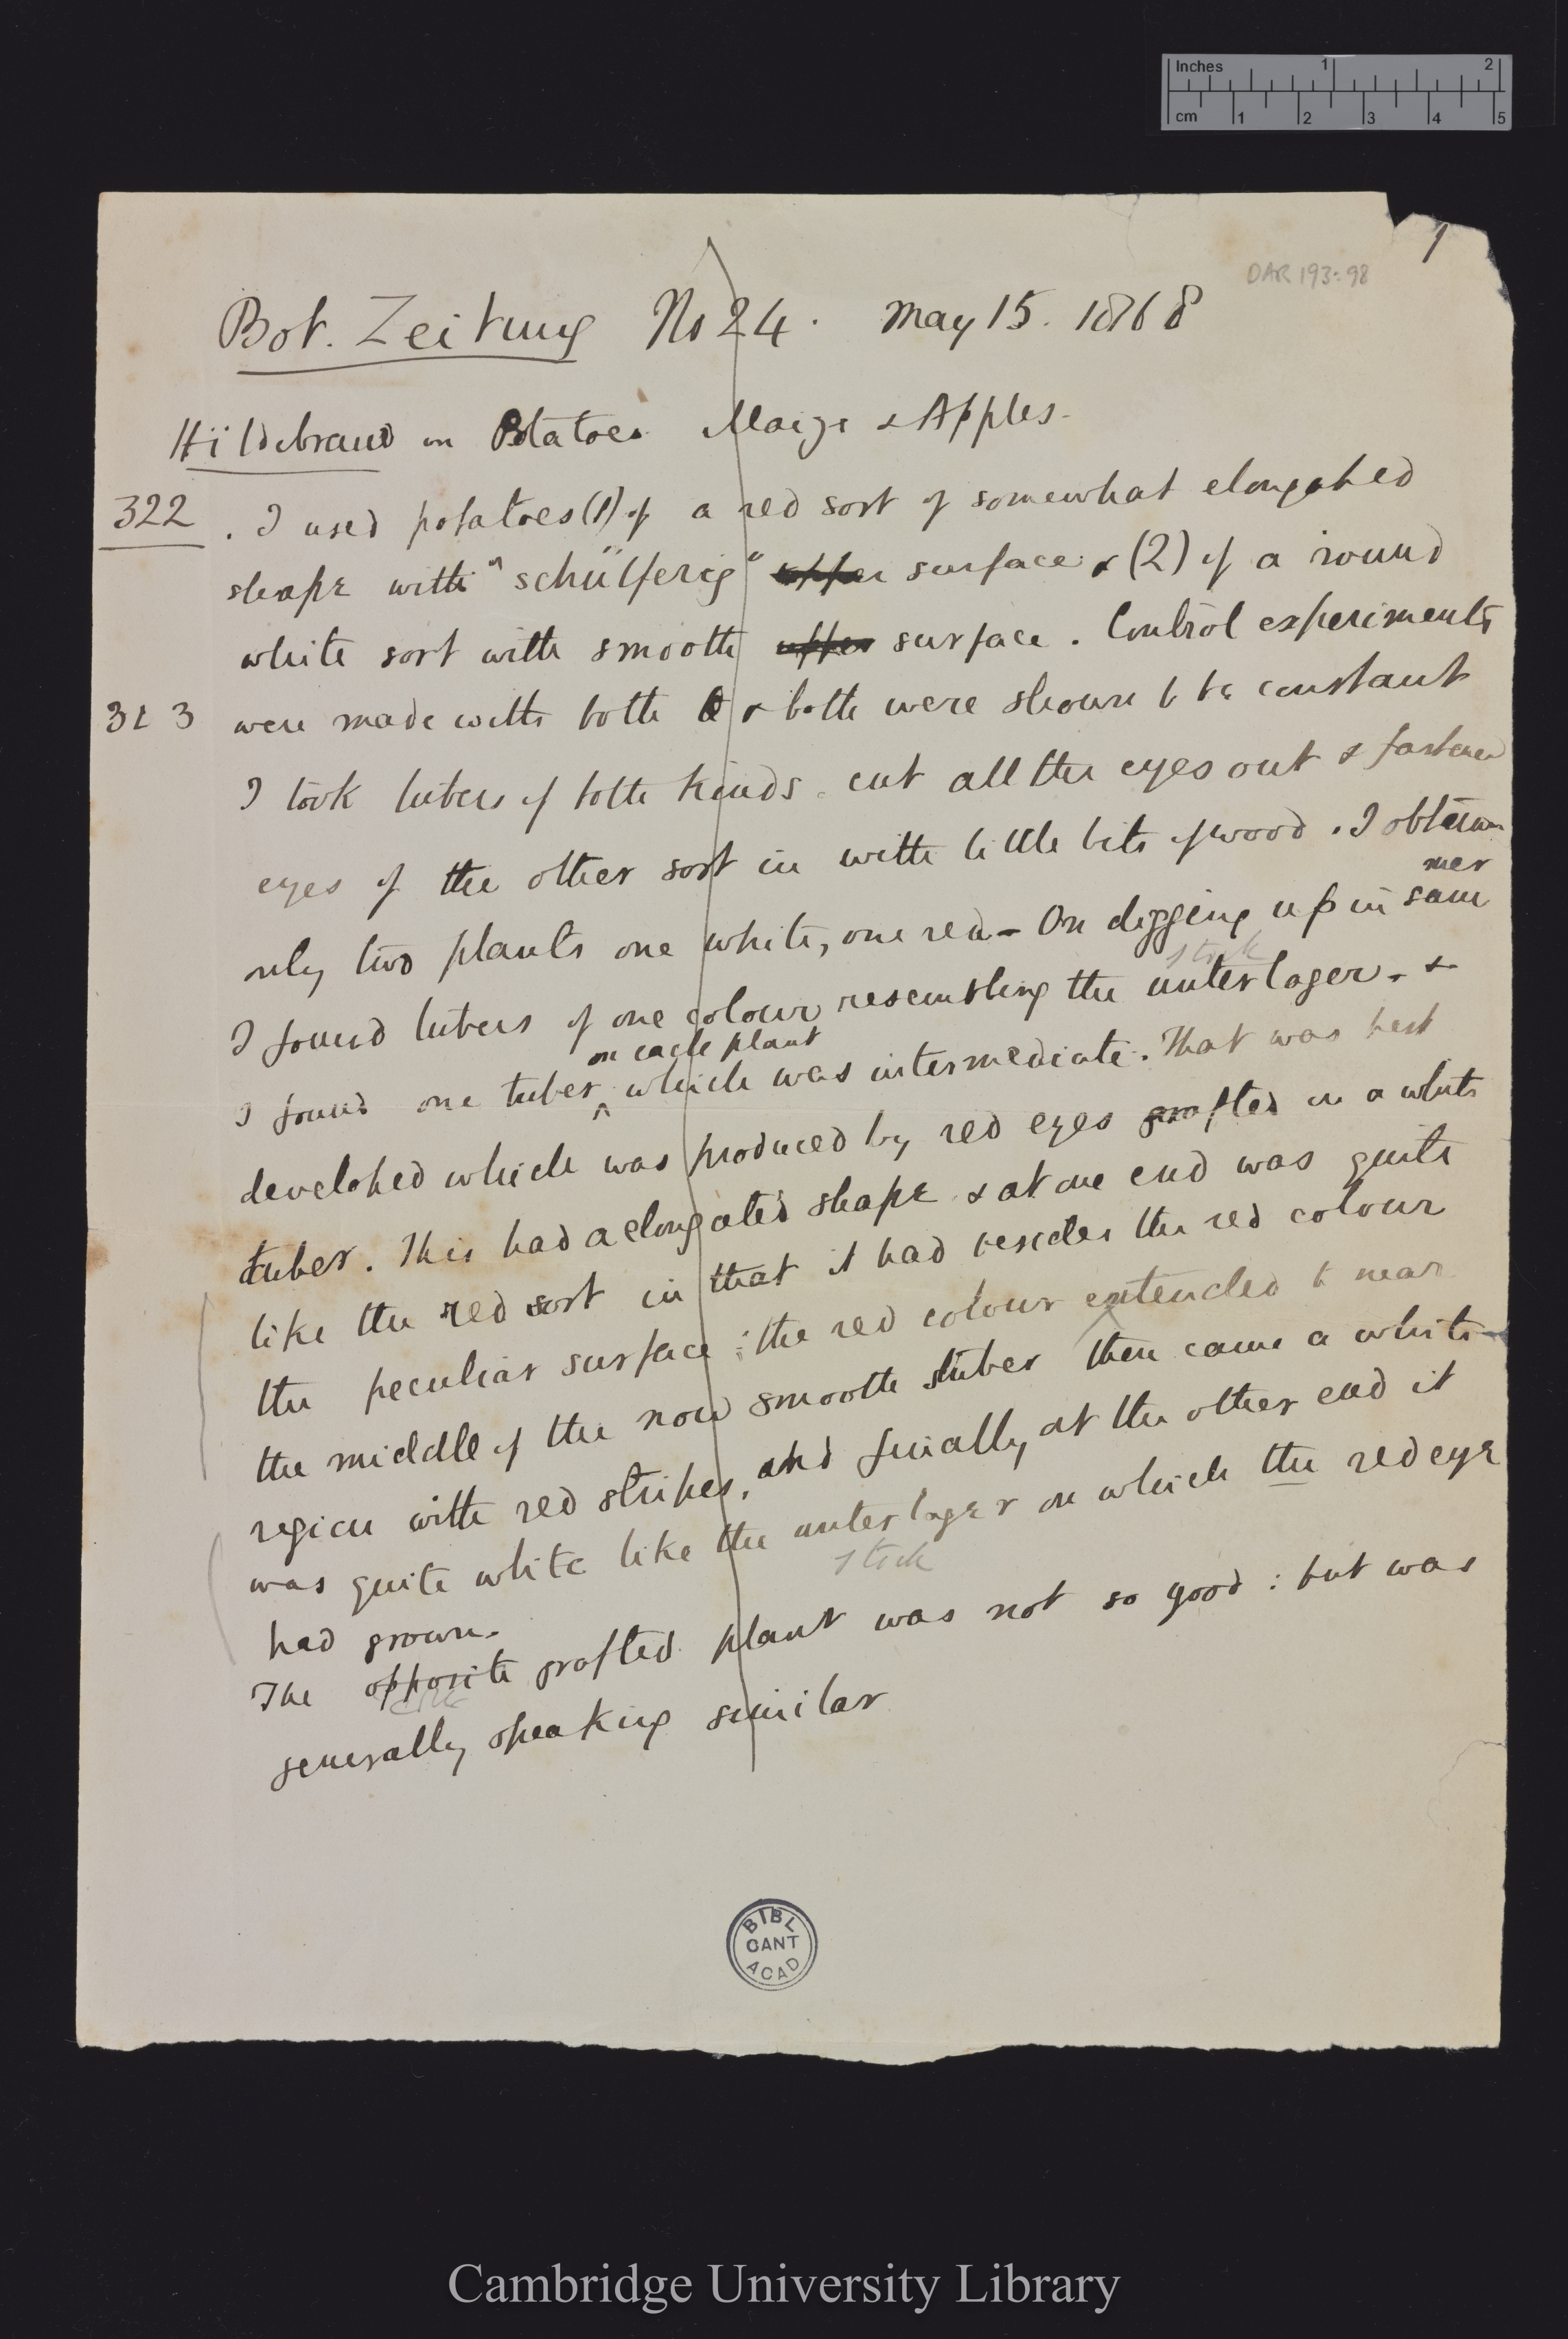 Inches 1 2
cm 1 2 3 4 5
1
DAR 193:98
Bot. Zeitung No 24. May 15. 1868
Hildebrand on Potatoes Maize & Apples.
322 . I used potatoes (1) of a red sort of somewhat elongated
shape with "schülferig" upper surface & (2) of a round
white sort with smooth upper surface. Control experiments
323 were made with both & both were shown to be constant
I took tubers of both kinds. cut all the eyes out & fastened
eyes of the other sort in with little bits of wood. I obtain
only two plants one white, one red – On digging up in sum
mer
stock
I found tubers of one colour resembling the unterlager. &
on each plant
I found one tuber ^ which was intermediate. That was best
developed which was produced by red eyes grafted in a white
tuber. This had a elongated shape & at one end was quite
like the red sort in that it had besides the red colour
the peculiar surface; the red colour extended to near
the middle of the now smooth tuber then came a white
region with red stripes, and finally at the other end it
was quite white like the unterlager on which the red eye
stock
had grown.
The opposite grafted plant was not so good: but was
generally speaking similar
BIBL
CANT
ACAD
Cambridge University Library